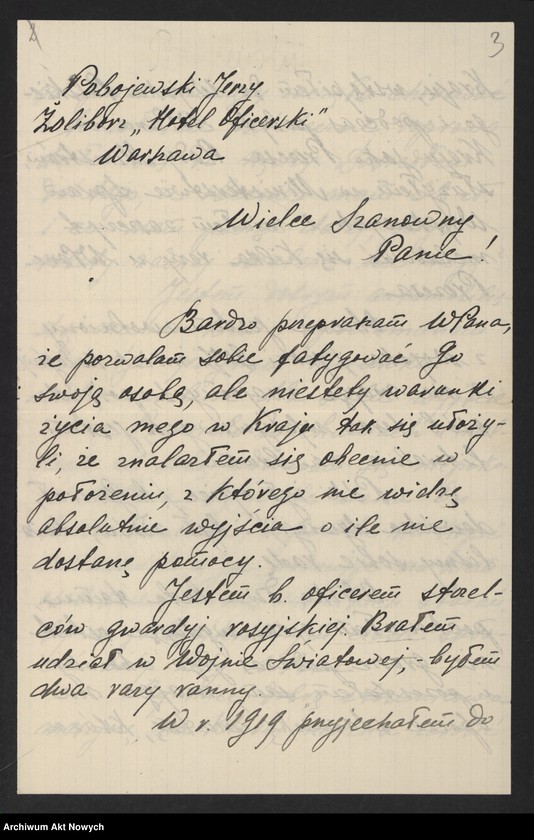 3
Pobojewski Jerzy
Żoliborz „Hotel Oficerski"
Warszawa
Wielce Szanowny
Panie!
Bardzo przepraszam WPana,
że pozwalam sobie fatygować Go
swoją osobą, ale niestety warunki
życia mego w Kraju tak się ułoży-
li, że znalazłem się obecnie w
położeniu, z którego nie widzę
absolutnie wyjścia o ile nie
dostanę pomocy.
Jestem b. oficerem strzel-
ców gwardyj rosyjskiej. Brałem
udział w Wojnie Światowej, - byłem
dwa razy ranny.
W r. 1919 przyjechałem do
Archiwum Akt Nowych